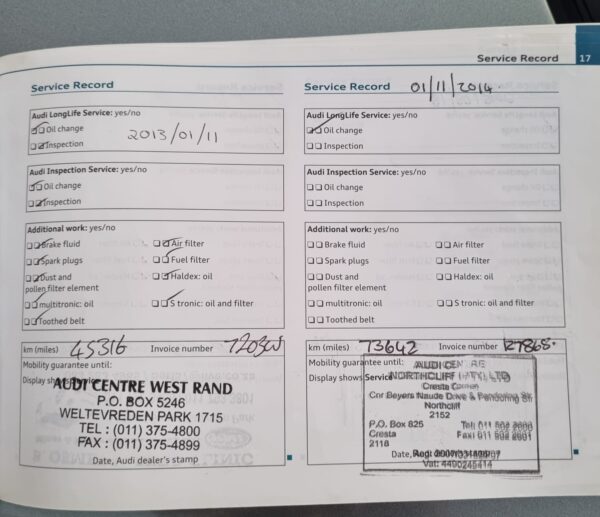 Service Record 17
Service Record
Audi LongLife Service: yes/no
Oil change
2013/01/11
Inspection
Audi Inspection Service: yes/no
Oil change
Inspection
Additional work: yes/no
Brake fluid
Air filter
Spark plugs
Fuel filter
Dust and
pollen filter element
Haldex: oil
multitronic: oil
S tronic: oil and filter
Toothed belt
km (miles) 45316 Invoice number
Mobility guarantee until:
Display shows
AUDI CENTRE WEST RAND
P.O. BOX 5246
WELTEVREDEN PARK 1715
TEL : (011) 375-4800
FAX : (011) 375-4899
Date, Audi dealer's stamp
Service Record 01/11/2014
Audi LongLife Service: yes/no
Oil change
Inspection
Audi Inspection Service: yes/no
Oil change
Inspection
Additional work: yes/no
Brake fluid
Air filter
Spark plugs
Fuel filter
Dust and
pollen filter element
Haldex: oil
multitronic: oil
S tronic: oil and filter
Toothed belt
km (miles) 73642 Invoice number
Mobility guarantee until:
Display shows Service
NORTHCLIFF (PTY) LTD
Cor Beyers Naude Drive &
Northcliff
2152
P.O. Box 825
Cresta
2118
Date,
Vat: 4490245414